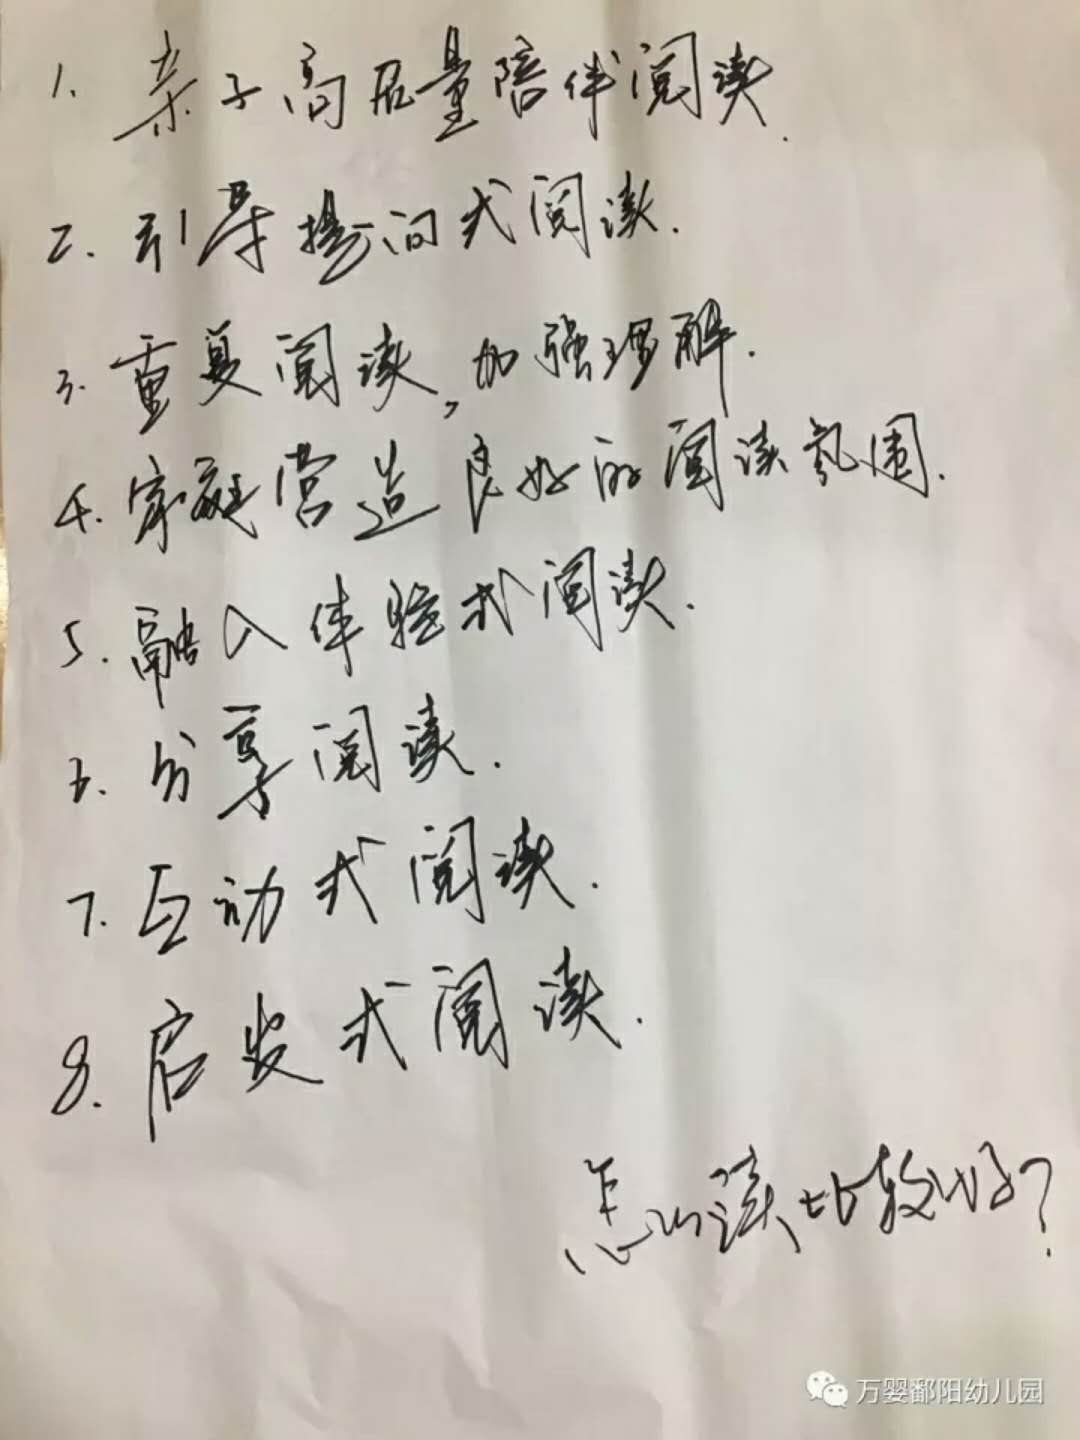 1. 亲子高质量陪伴阅读.
2. 引导提问式阅读.
3. 重复阅读,加强理解.
4. 家庭营造良好的阅读氛围.
5. 融入体验式阅读.
6. 分享阅读.
7. 互动式阅读.
8. 启发式阅读.
怎么读比较好?
万婴鄱阳幼儿园